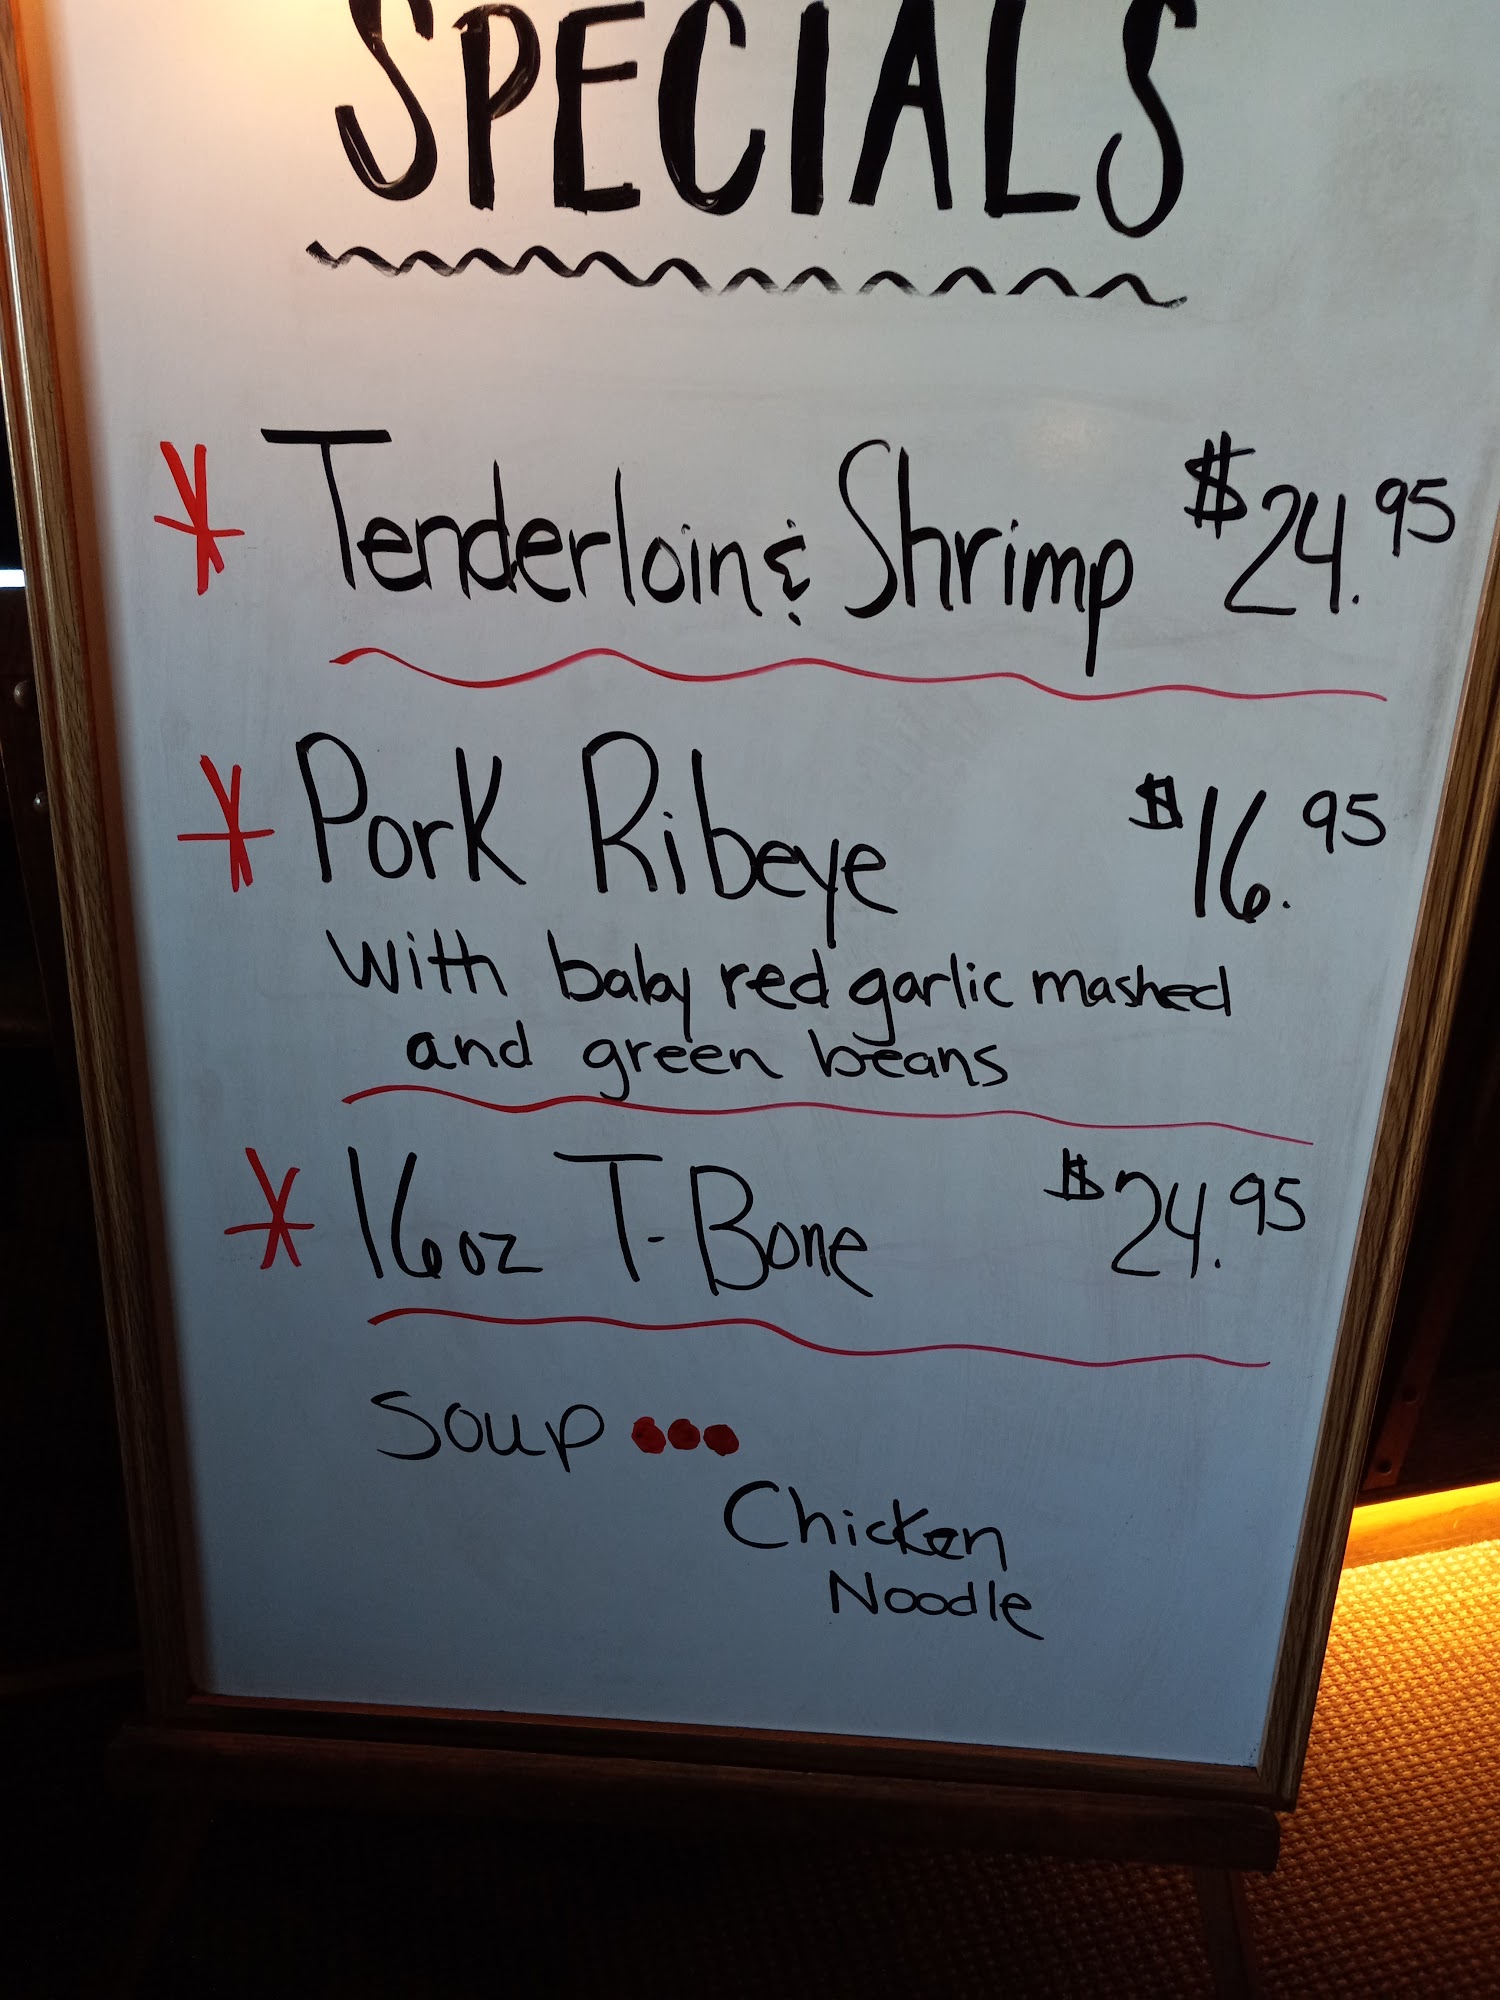 SPECIALS
* Tenderloin & Shrimp $24.95
* Pork Ribeye $16.95
with baby red garlic mashed
and green beans
* 16oz T-Bone $24.95
Soup •••
Chicken
Noodle